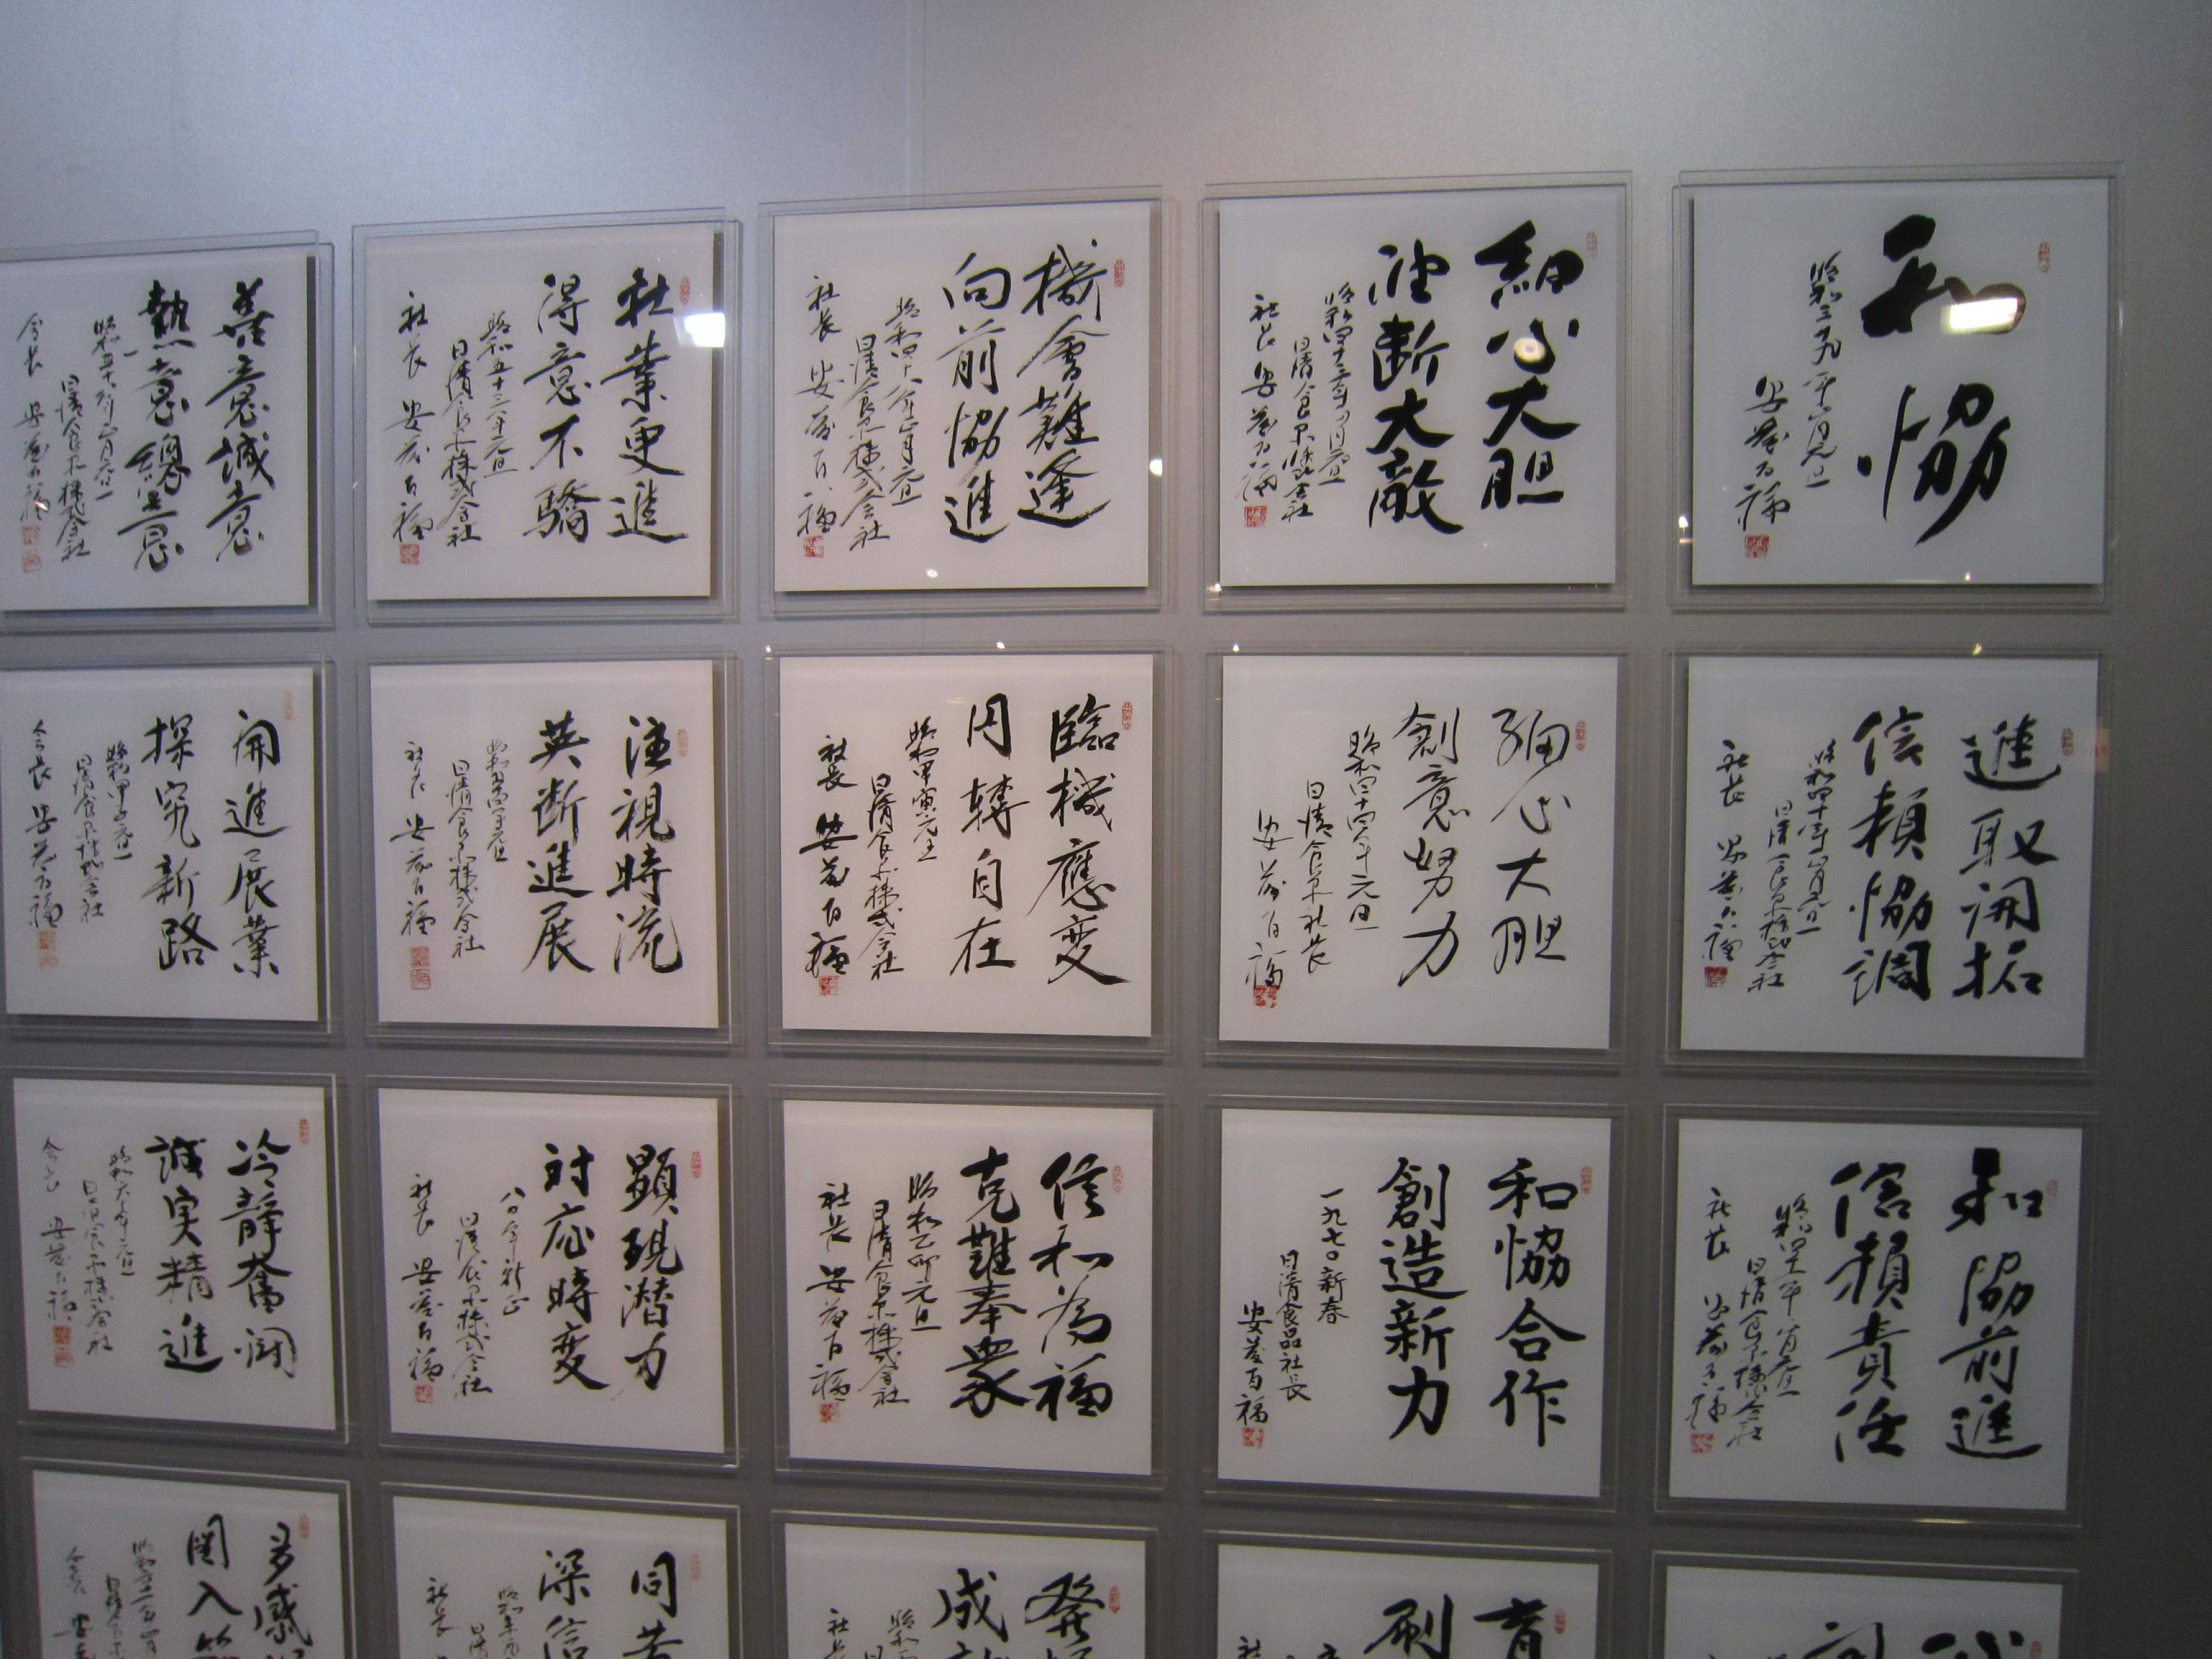 和協
安藤百福
細心大胆
決断大敵
昭和四十三年
日清食品株式会社
社長 安藤百福
機會難逢
向前協進
昭和四十八年正月元旦
日清食品株式会社
社長 安藤百福
社業更進
得意不驕
昭和五十三年元旦
日清食品株式会社
社長 安藤百福
善意誠意
熱意總意
日清食品株式会社
会長 安藤百福
進取開拓
信頼協調
日清食品株式会社
社長 安藤百福
細心大胆
創意努力
昭和四十四年元旦
日清食品社長
安藤百福
臨機應変
円轉自在
昭和甲寅元旦
日清食品株式会社
社長 安藤百福
注視時流
英断進展
日清食品株式会社
社長 安藤百福
開進展業
探究新路
昭和甲子元旦
日清食品株式会社
会長 安藤百福
和協前進
信頼責任
日清食品株式会社
社長 安藤百福
和協合作
創造新力
一九七〇新春
日清食品社長
安藤百福
信和為福
克難奉衆
昭和乙卯元旦
日清食品株式会社
社長 安藤百福
顕現潜力
対応時変
八〇年新正
日清食品株式会社
社長 安藤百福
冷静奮闘
誠実精進
昭和六十年元旦
日清食品株式会社
会長 安藤百福
育
刷
社
成
社長
同
深信
社長
多感
会長